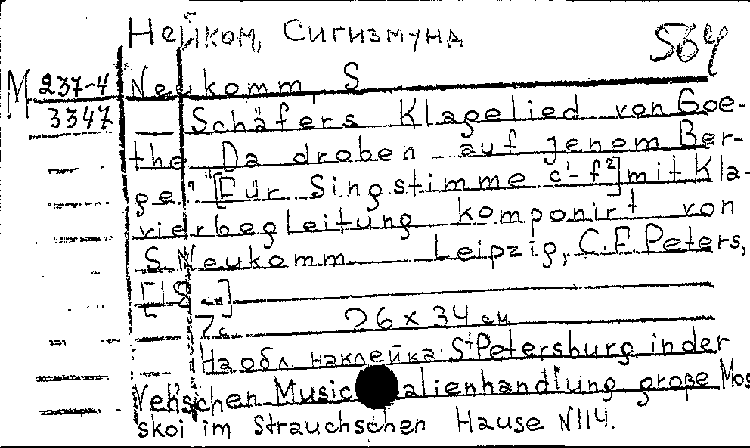 Нейком, Сигизмунд
564
М 237-4
3347
Neukomm, S
Schäfers Klagelied von Goe-
the "Da droben auf jenem Ber-
ge" [Für Singstimme c¹-f²] mit Kla-
vierbegleitung komponirt von
S. Neukomm Leipzig, C.F. Peters,
[18..]
7с 26 x 34 см
На обл. наклейка: St Petersburg in der
schen Musicalienhandlung große Mos
skoi im Strauchschen Hause N114.